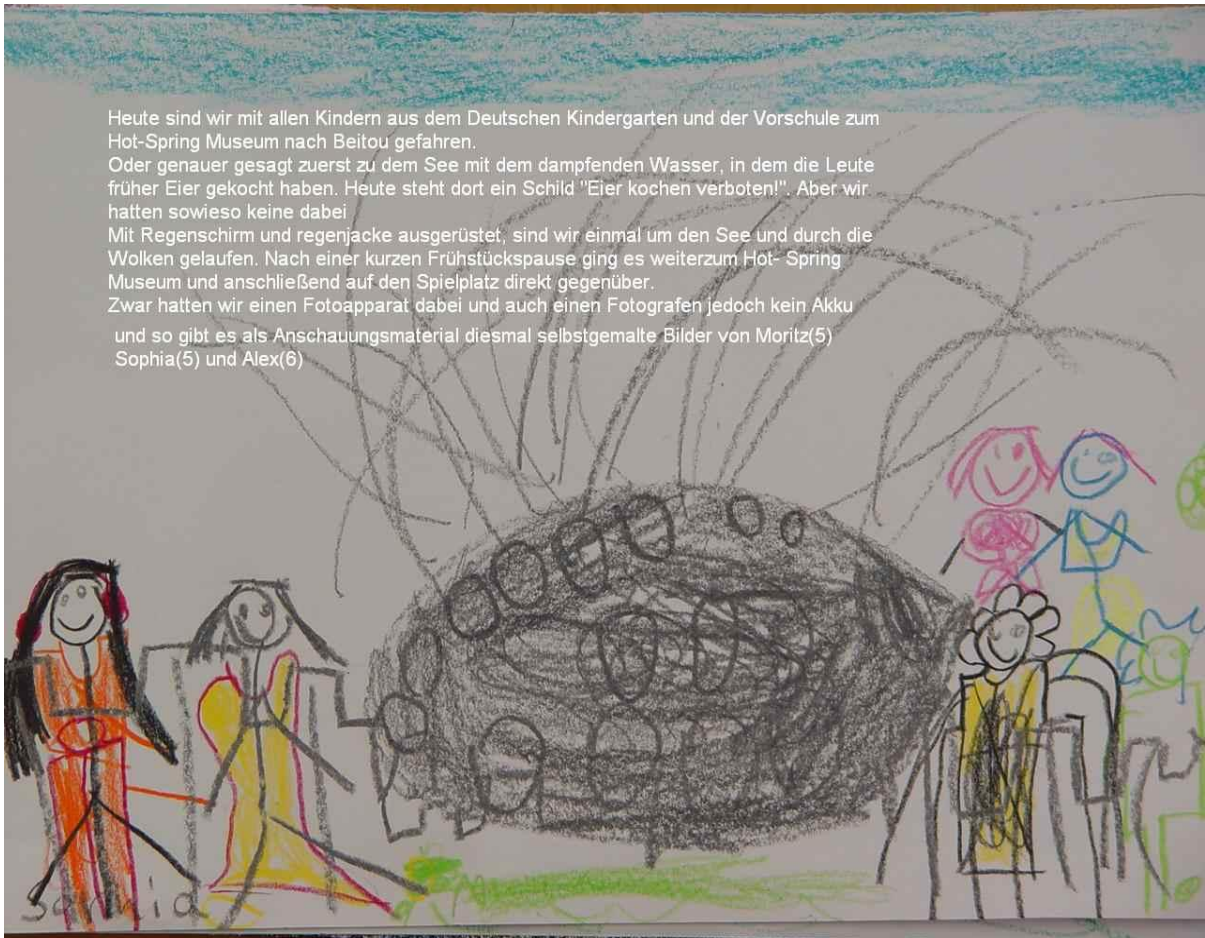 Heute sind wir mit allen Kindern aus dem Deutschen Kindergarten und der Vorschule zum
Hot-Spring Museum nach Beitou gefahren.
Oder genauer gesagt zuerst zu dem See mit dem dampfenden Wasser, in dem die Leute
früher Eier gekocht haben. Heute steht dort ein Schild "Eier kochen verboten!". Aber wir
hatten sowieso keine dabei
Mit Regenschirm und regenjacke ausgerüstet, sind wir einmal um den See und durch die
Wolken gelaufen. Nach einer kurzen Frühstückspause ging es weiterzum Hot- Spring
Museum und anschließend auf den Spielplatz direkt gegenüber.
Zwar hatten wir einen Fotoapparat dabei und auch einen Fotografen jedoch kein Akku
und so gibt es als Anschauungsmaterial diesmal selbstgemalte Bilder von Moritz(5)
Sophia(5) und Alex(6)